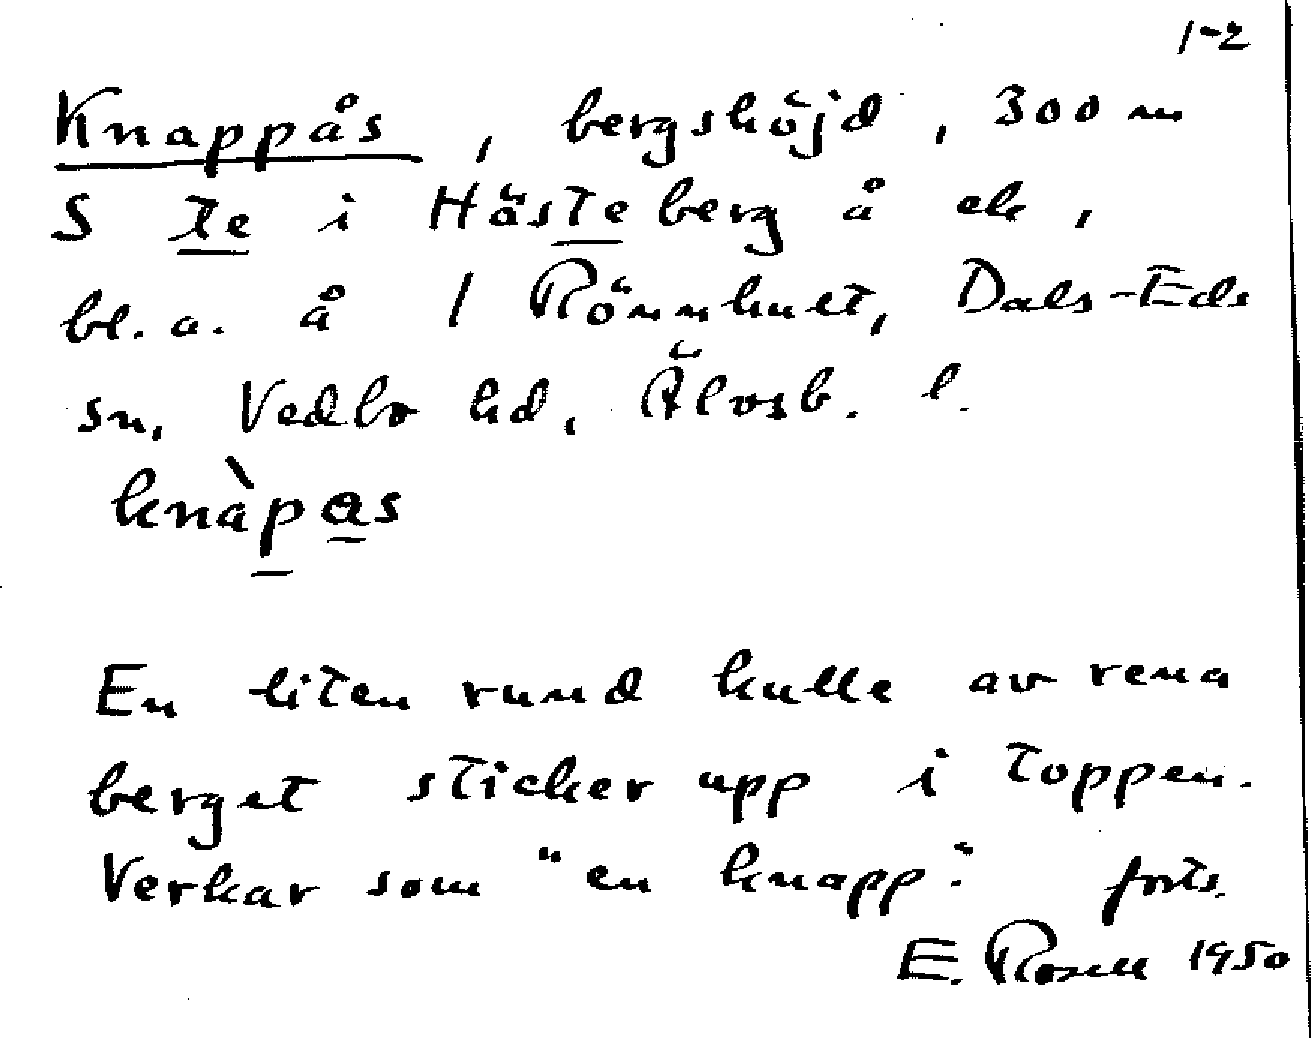 1-2
Knappås, bergshöjd, 300 m
S te i Hästeberg å ek,
bl.a. å 1 Rönnhult, Dals-Eds
sn, Vedbo hd, Älvsb. l.
knàpas
En liten rund kulle av rena
berget sticker upp i toppen.
Verkar som "en knapp". forts.
E. Rosell 1950